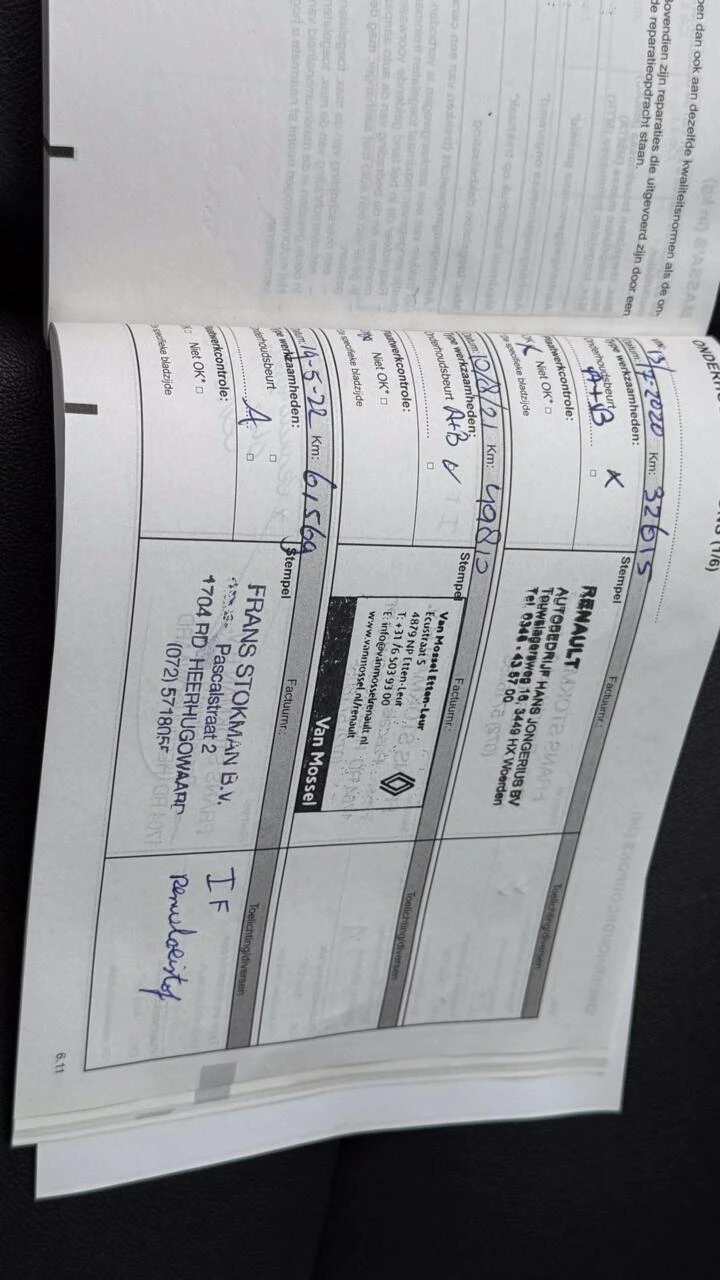 pen dan ook aan dezelfde kwaliteitsnormen als de on-
Bovendien zijn reparaties die uitgevoerd zijn door een
de reparatieopdracht staan.
(1/6)
13/7-2020 Km: 32615
Stempel
Factuurnr.:
Toelichting/diversen
type werkzaamheden:
Onderhoudsbeurt
A+B
X
□
aatwerkcontrole:
Niet OK* □
specifieke bladzijde
RENAULT
AUTOBEDRIJF HANS JONGERIUS BV
Touwslagersweg 16, 3449 HX Woerden
Tel. 0348 - 43 67 00
Datum: 10/8/21 Km: 49810
Stempel
Factuurnr.:
Toelichting/diversen
Type werkzaamheden:
Onderhoudsbeurt A+B
□
aatwerkcontrole:
Niet OK* □
specifieke bladzijde
Van Mossel Etten-Leur
Ecustraat 5
4879 NP Etten-Leur
T: +31 76 503 93 00
E: info@vanmosselrenault.nl
www.vanmosselrenault.nl/renault
Van Mossel
19-5-22 Km: 61569
Stempel
Factuurnr.:
Toelichting/diversen
type werkzaamheden:
Onderhoudsbeurt
□
A
□
aatwerkcontrole:
Niet OK* □
specifieke bladzijde
FRANS STOKMAN B.V.
Pascalstraat 2
1704 RD HEERHUGOWAARD
(072) 571805
I F
Remvloeistof
6.11